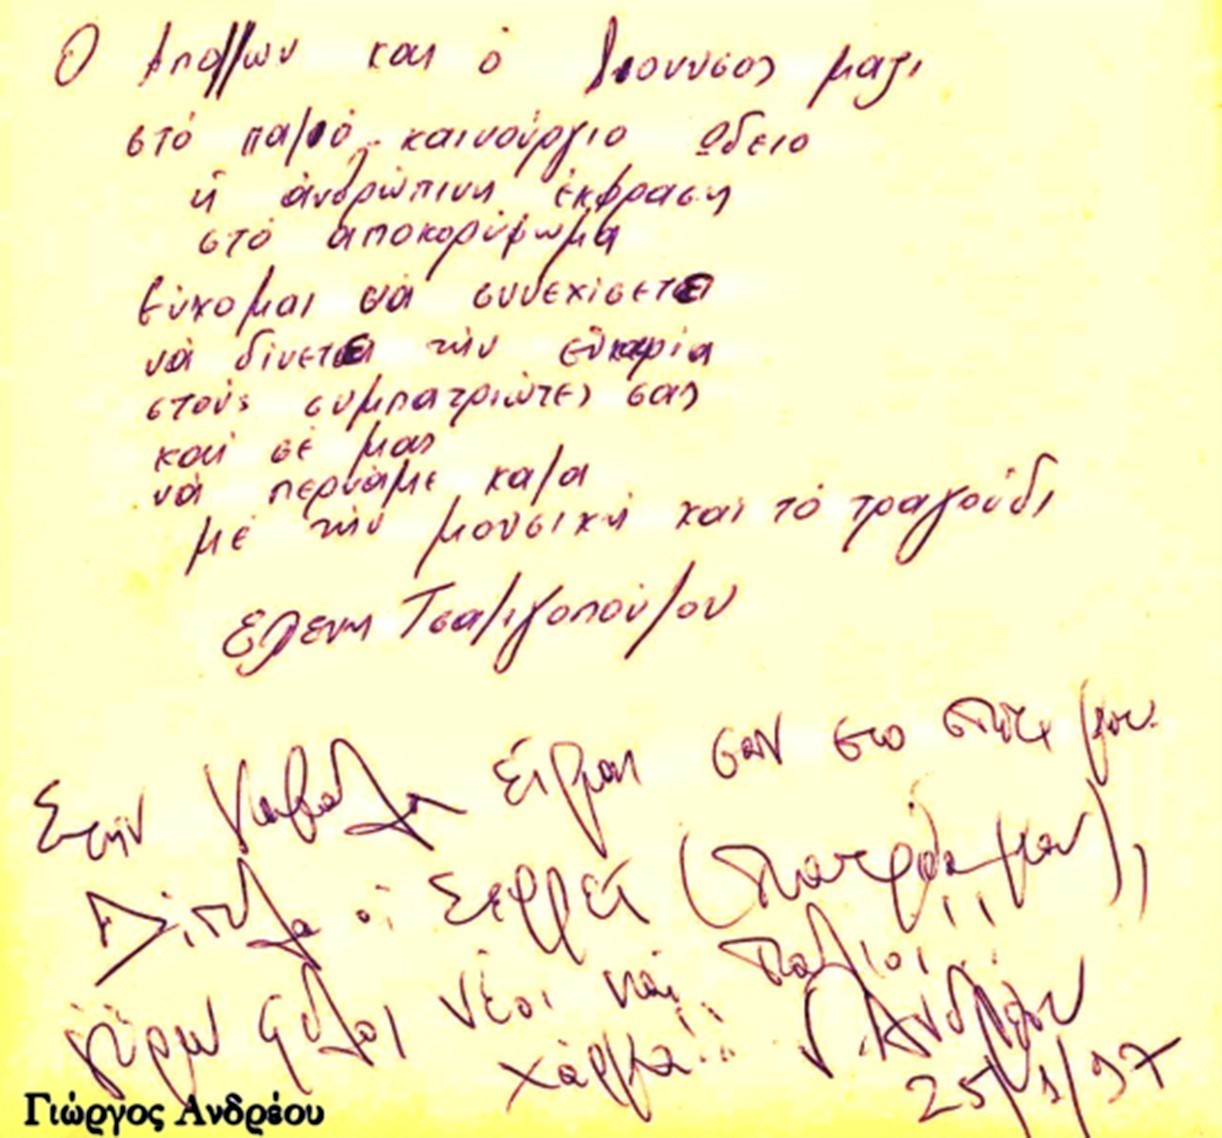 Ο Απόλλων και ὁ Διονυσος μαζι
στό παλιό - καινούργιο Ωδειο
ἡ ἀνθρώπινη ἐκφραση
στό αποκορύφωμα
Εὐχομαι νά συνεχίσετε
νά δίνετε τήν εὐκαιρία
στούς συμπατριώτες σας
καί σέ μας
νά περνάμε καλα
μέ τήν μουσική καί τό τραγούδι
Ελενη Τσαλιγοπούλου
Στην Καβάλα είμαι σαν στο σπίτι μου.
Δίπλα οι Σέρρες (πατρίδα μου),
γύρω φίλοι νέοι και παλιοί..
χάρμα!.. Γ. Ανδρέου
25/1/97
Γιώργος Ανδρέου